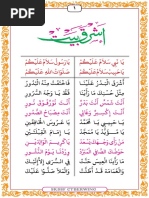 ١
يَا نَبِي سَلَامٌ عَلَيْكُمْ يَا رَسُولْ سَلَامٌ عَلَيْكُمْ
يَا حَبِيبْ سَلَامٌ عَلَيْكُمْ صَلَوَاتُ اللهِ عَلَيْكُمْ
أَشْرَقَ الْبَدْرُ عَلَيْنَا فَاخْتَفَتْ مِنْهُ الْبُدُورُ
مِثْلَ حُسْنِكَ مَا رَأَيْنَا قَطُّ يَا وَجْهَ السُّرُورِ
أَنْتَ شَمْسٌ أَنْتَ بَدْرٌ أَنْتَ نُورٌ فَوْقَ نُورِ
أَنْتَ إِكْسِيرٌ وَغَالِي أَنْتَ مِصْبَاحُ الصُّدُورِ
يَا حَبِيبِي يَا مُحَمَّدْ يَا عَرُوسَ الْخَافِقَيْنِ
يَا مُؤَيَّدْ يَا مُمَجَّدْ يَا إِمَامَ الْقِبْلَتَيْنِ
مَنْ رَأَى وَجْهَكَ يَسْعَدْ يَا كَرِيمَ الْوَالِدَيْنِ
حَوْضُكَ الصَّافِي الْمُبَرَّدْ وِرْدُنَا يَوْمَ النُّشُورِ
مَا رَأَيْنَا الْعِيسَ حَنَّتْ بِالسُّرَى إِلَّا إِلَيْكَ
CYBERWING